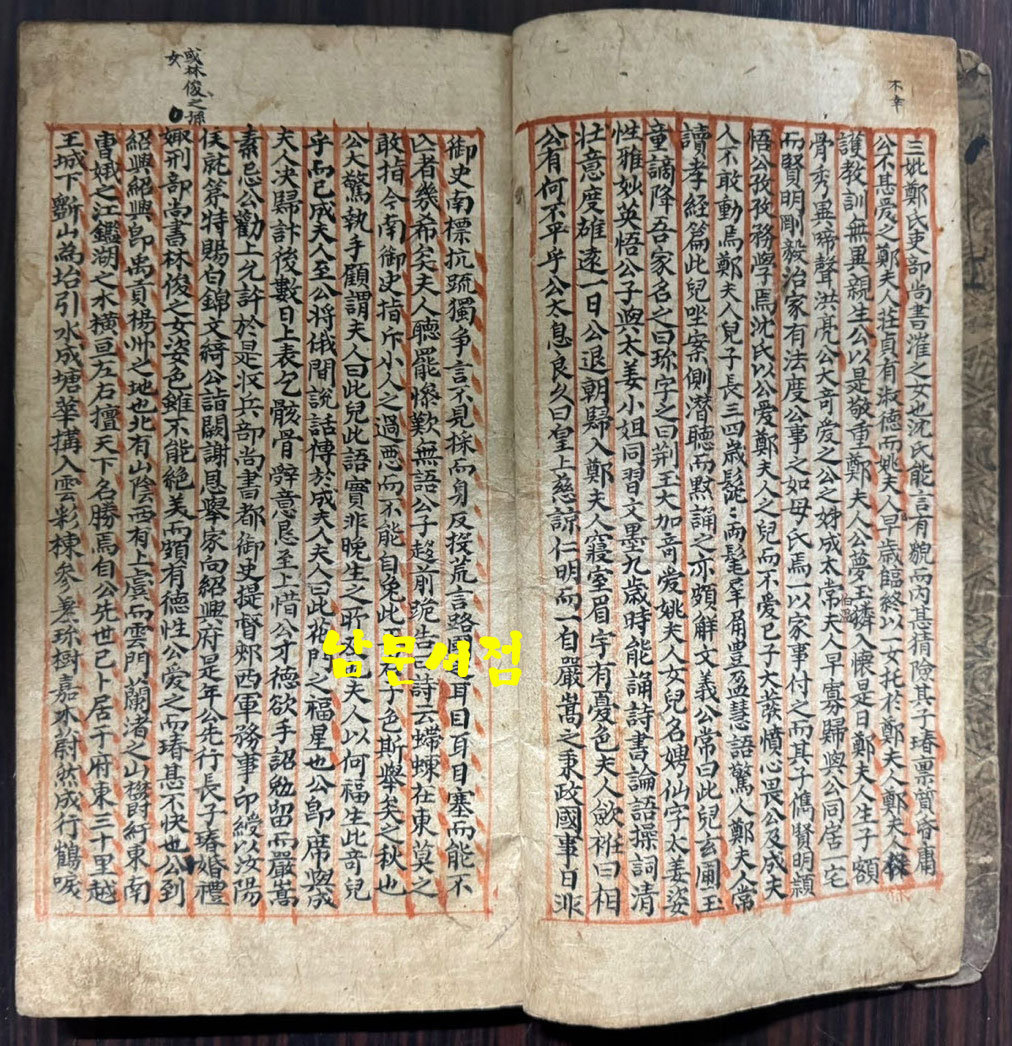 不幸
三妣鄭氏吏部尚書灌之女也沈氏能言有貌而內甚猜險其子瑃禀質昏庸
公不甚愛之鄭夫人莊貞有淑德而姚夫人早歲臨終以一女托於鄭夫人鄭夫人
護教訓無異親生公以是敬重鄭夫人公夢玉燐入懷是日鄭夫人生子額
骨秀異啼聲洪亮公大奇愛之公之姊成太常夫人早寡歸與公同居一宅
而賢明剛毅治家有法度公事之如母氏焉一以家事付之而其子儁賢明穎
悟公孜孜務學焉沈氏以公愛鄭夫人之兒而不愛己子大蓄憤心畏公及成夫
人不敢動焉鄭夫人兒子長三四歲髧:兩髦犀角豊盈慧語驚人鄭夫人常
讀孝經篇此兒坐案側潛聽而黙誦之亦頗解文義公常曰此兒玄圃玉
童謫降吾家名之曰珎字之曰荊王大加奇愛姚夫人女兒名娉仙字太姜姿
性雅妙英悟公子與太姜小姐同習文墨九歲時能誦詩書論語操詞清
壯意度雄遠一日公退朝歸入鄭夫人寢室眉宇有憂色夫人歛袵曰相
公有何不平乎公太息良久曰皇上慈諒仁明而一自嚴嵩之秉政國事日非
或林俊之孫
女
御史南標抗疏獨爭言不見採而身反投荒言路國耳目日塞而能不
亾者幾希矣夫人聽罷慘歎無語公子趍前跪告詩云蝃蝀在東莫之
敢指今南御史指斥小人之過惡而不能自免此子色斯舉矣之秋也
公大驚執手顧謂夫人曰此兒此語實非晚生之所夫人以何福生此奇兒
乎而已成夫人至公將俄間說話傳於成夫人夫人曰此祐門之福星也公卽席與成
夫人决歸計後數日上表乞骸骨辭意恳至上惜公才德欲手詔勉留而嚴嵩
素忌公勸上允許於是收兵部尚書都御史提督郯西軍務事印綬以汝陽
侯就第特賜白錦文綺公詣闕謝恩舉家向紹興府是年公先行長子瑃婚禮
娵刑部尚書林俊之女姿色雖不能絶美而頗有德性公愛之而瑃甚不快也公到
紹興紹興卽禹貢楊州之地也北有山陰西有上虞而雲門蘭渚之山欝紆東南
曺娥之江鑑湖之水橫亘左右擅天下名勝焉自公先世已卜居于府東三十里越
王城下斲山為坮引水成塘華搆入雲彩棟參差珎樹嘉木蔚然成行鶴唳
남문서점